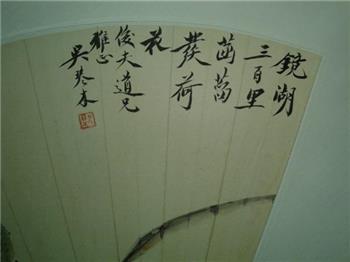 鏡湖
三百里
菡萏
發荷
花
俊夫道兄
雅正
吳琴木